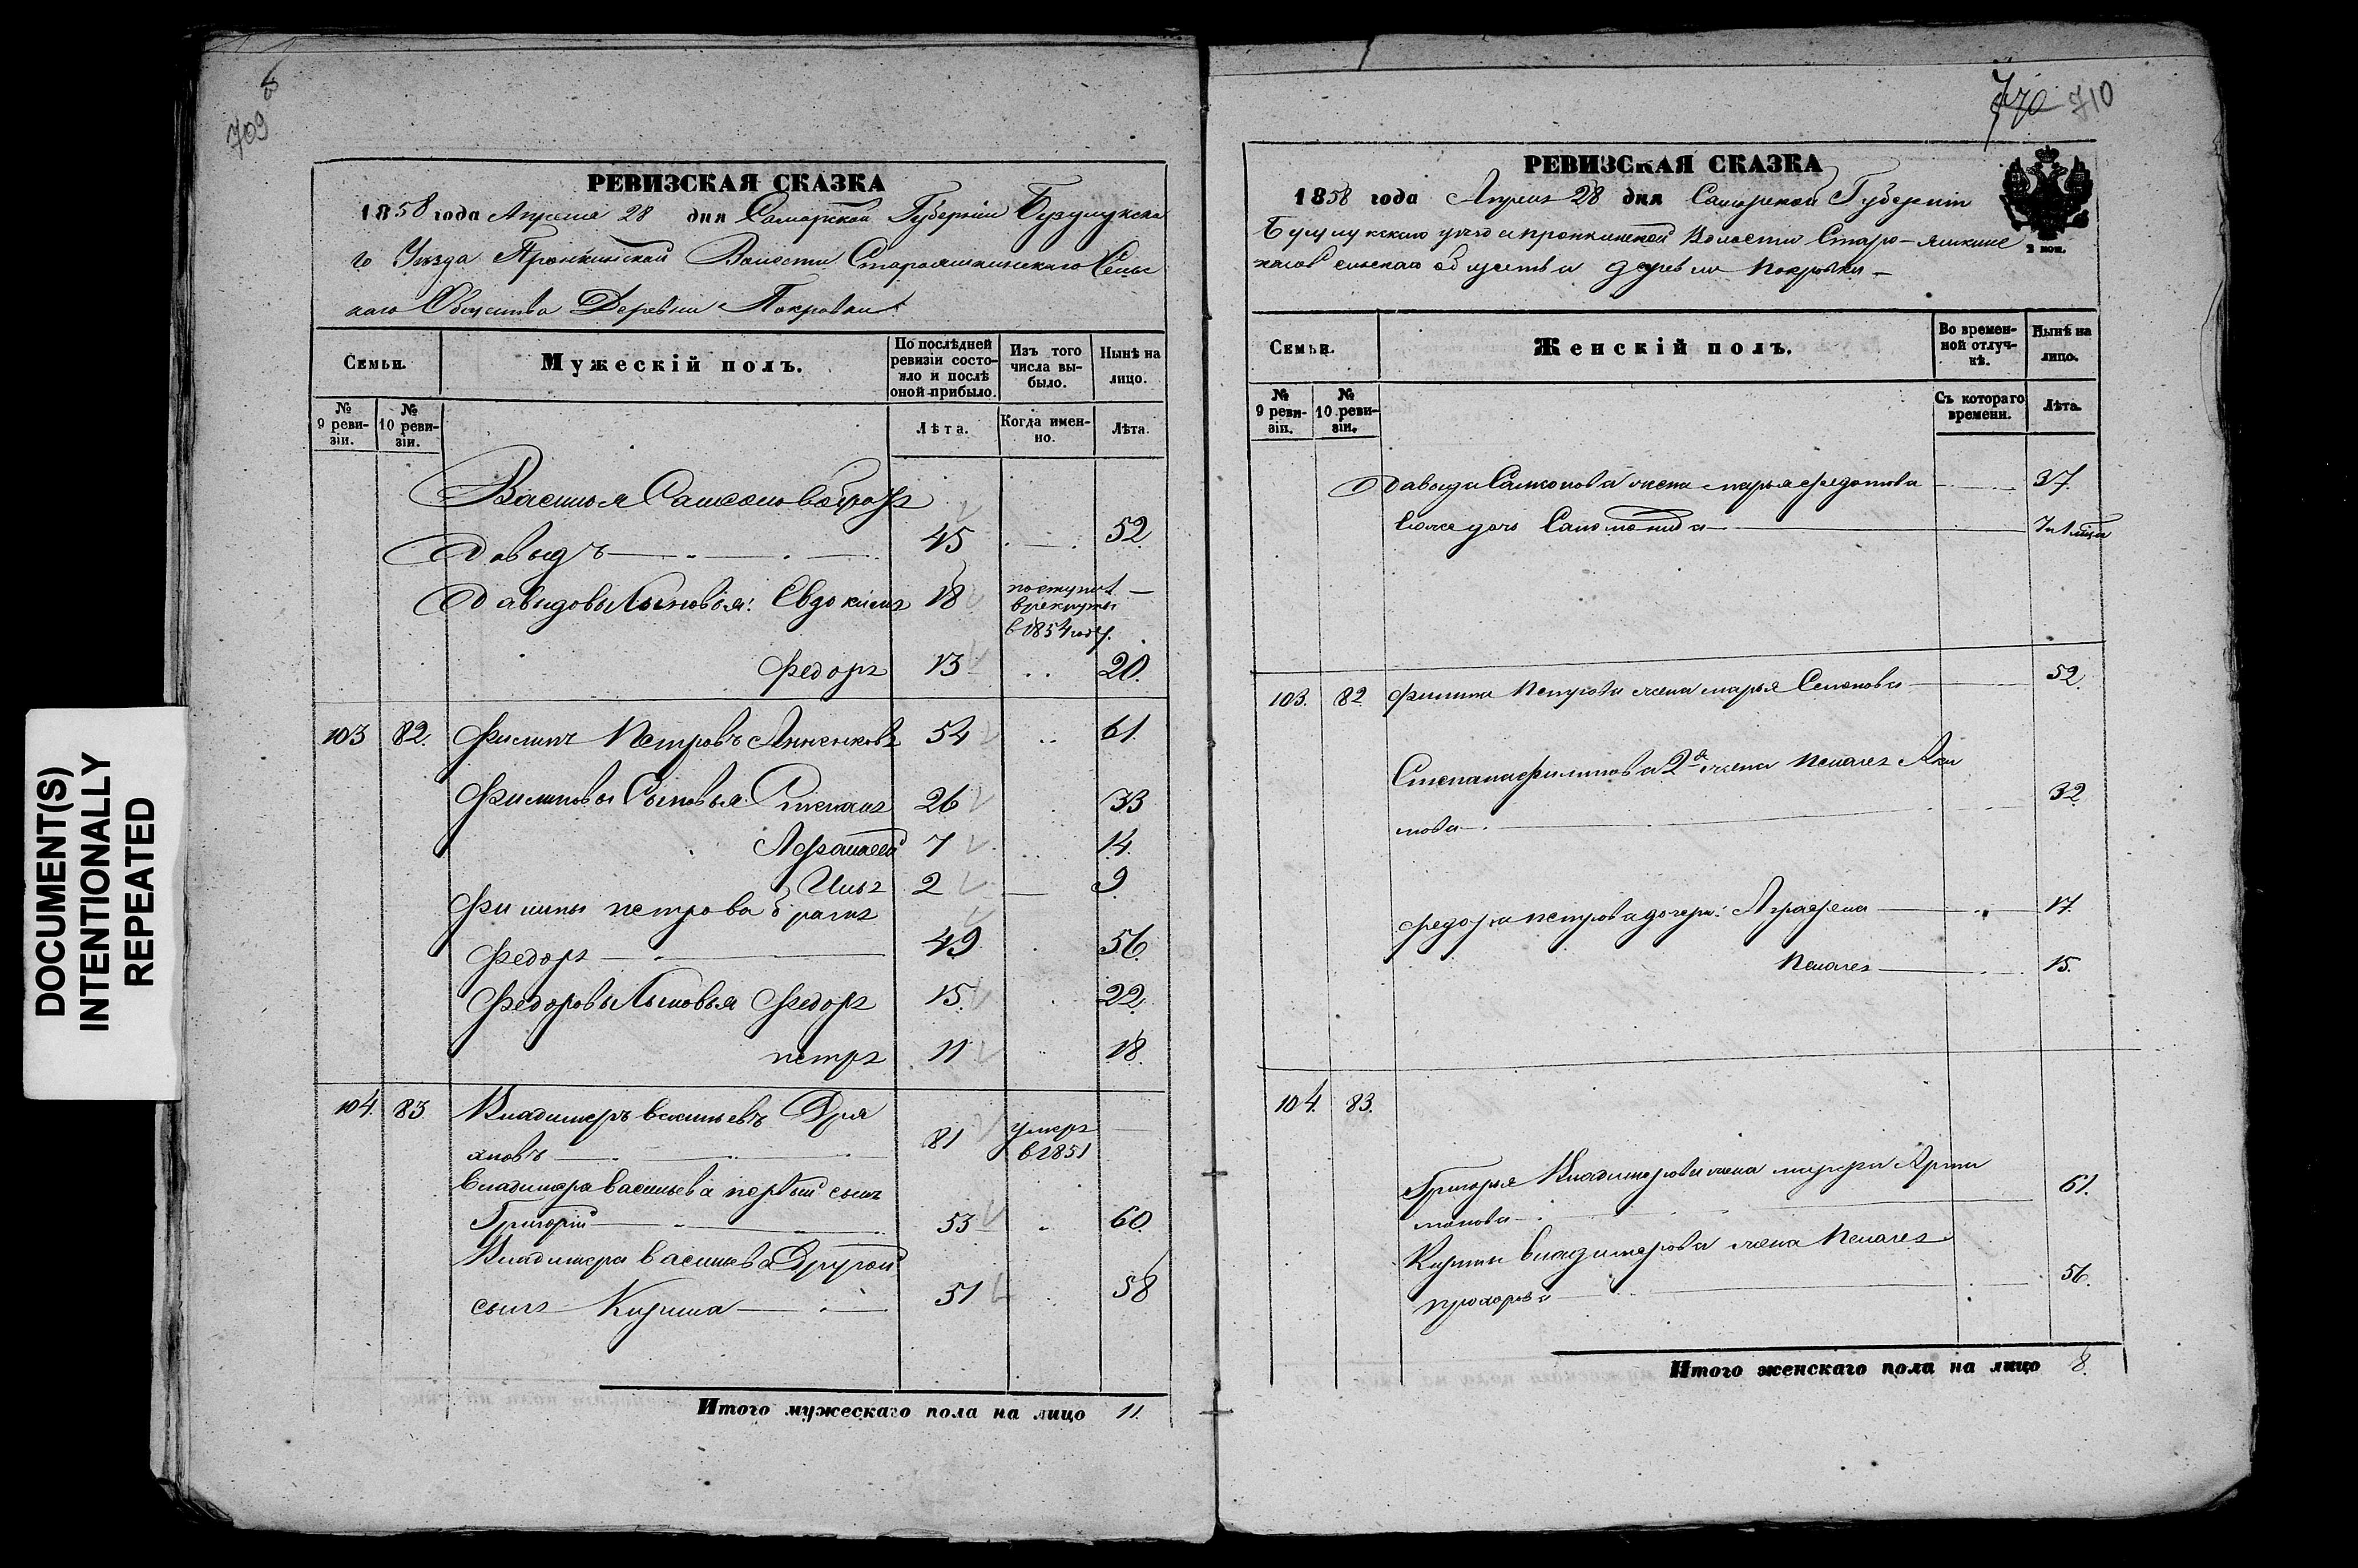 DOCUMENT(S)
INTENTIONALLY
REPEATED
709
РЕВИЗСКАЯ СКАЗКА
1858 года Апреля 28 дня Самарской Губернии Бузулукска
го Уезда Пронкинской Волости Старояшкинскаго Сель
каго Общества Деревни Покровки
Семьи.
Мужескій полъ.
По послѣдней
ревизіи состо-
яло и послѣ
оной прибыло.
Изъ того
числа вы-
было.
Нынѣ на
лицо.
№
9 реви-
зіи.
№
10 реви-
зіи.
Лѣта.
Когда имен-
но.
Лѣта.
Василья Самсонова братъ
Давыдъ 45 52
Давыдовы Сыновья: Евдокимъ 18 поступил
в рекруты
в 1854 году.
Федоръ 13 20.
103 82. Филипъ Петровъ Анненковъ 54 61
Филиповы Сыновья Степанъ 26 33
Афанасей 7 14.
Илья 2 9
Филипа петрова братъ
Федоръ 49 56
Федоровы Сыновья Федоръ 15. 22.
петръ 11 18
104. 83. Владимеръ васильевъ Дря
хловъ 81 умеръ
в 1851
Владимера васильева первый сынъ
Григорій 53 60.
Владимера васильева Другой
сынъ Кирила 51 58
Итого мужескаго пола на лицо 11.
770 710
РЕВИЗСКАЯ СКАЗКА
1858 года Апреля 28 дня Самарской Губерніи
Бузулукскаго уезда пронкинской Волости Старо-яшкинс
каго сельскаго общества деревни Покровки
2 коп.
Семьи.
Женскій полъ.
Во времен-
ной отлуч-
кѣ.
Нынѣ на
лицо.
№
9 реви-
зіи.
№
10 реви-
зіи.
Съ котораго
времени.
Лѣта.
Давыда Самсонова жена марья федотова 37.
Ево же дочь Саломонида
103. 82 Филипа Петрова жена марья Семенова 52.
Степана филипова 2я жена Пелагея Аки
мова 32
Федора петрова дочери: Аграфена 17.
Пелагея 15.
104. 83.
Григорья Владимерова жена Арта
монова 61.
Кирилы владимерова жена Пелагея
прохорова 56.
Итого женскаго пола на лицо 8.